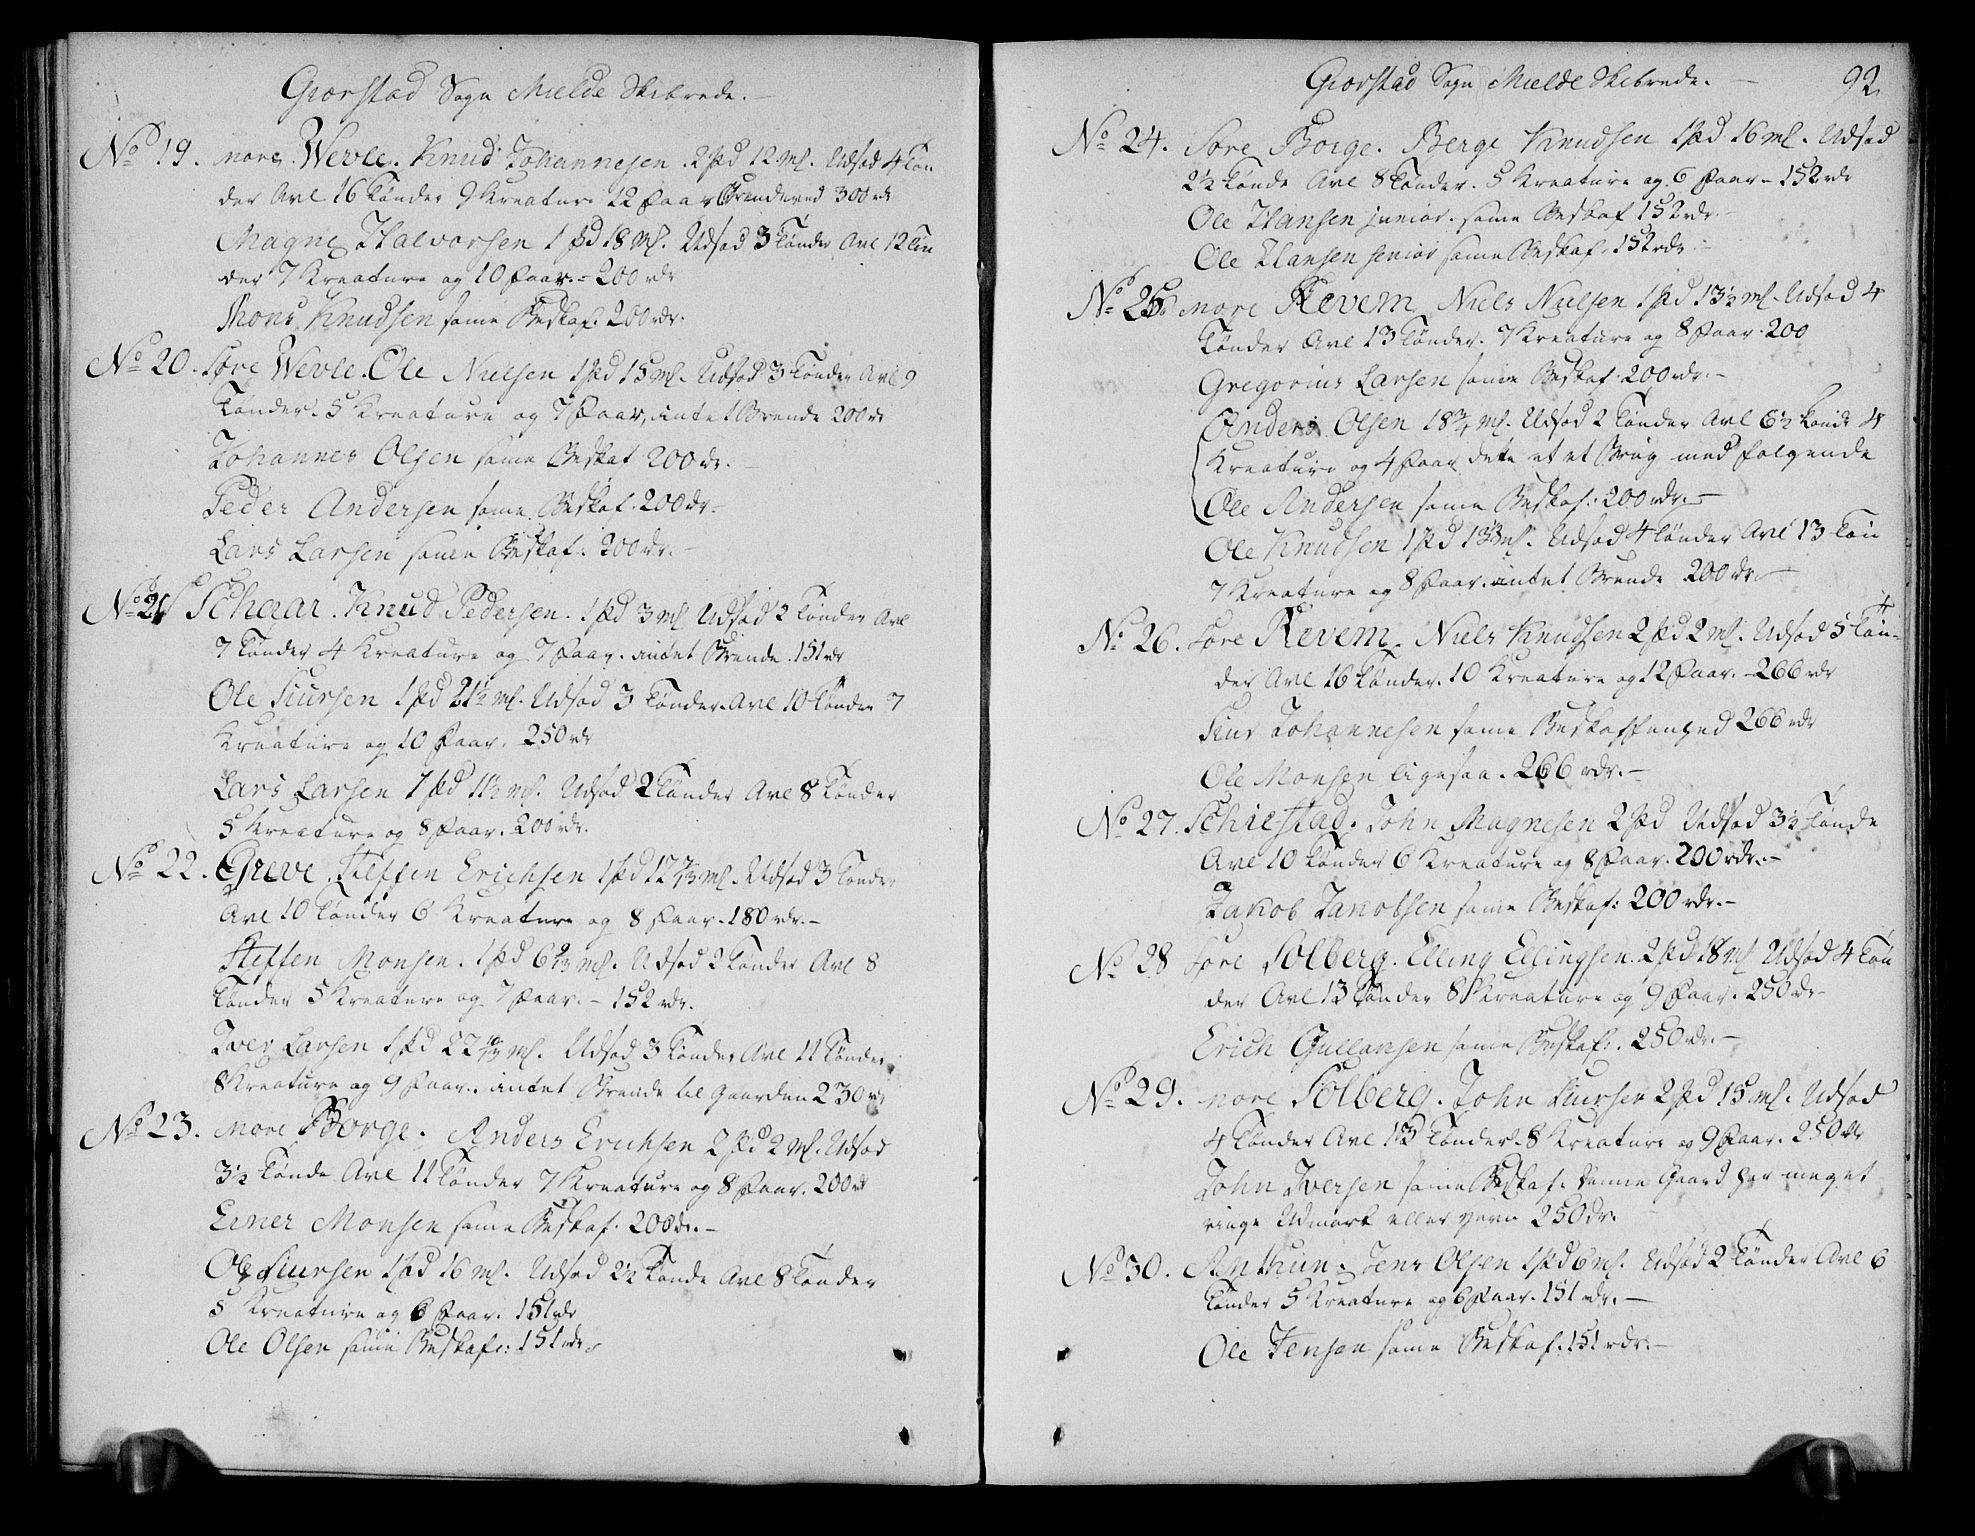 Giorstad Sogn Mielde Skibrede. –
No 19. nore Wevle. Knud Johannesen 2 pd 12 ml. Udsæd 4 Tøn
der Avl 16 Tønder 9 Kreature 12 Faar Brendeved 300 rdr
Magne Halvorsen 1 pd 18 ml. Udsæd 3 Tønder Avl 12 Tøn
der 7 Kreature og 10 Faar. – 200 rdr
Mons Knudsen same Beskaf: 200 rdr.
No 20. Søre Wevle. Ole Nielsen 1 pd 15 ml. Udsæd 3 Tønder Avl 9
Tønder. 5 Kreature og 7 Faar, intet Brende 200 rdr
Johannes Olsen same Beskaf 200 dr. –
Peder Andersen same Beskaf. 200 dr –
Lars Larsen same Beskaf. 200 dr. –
No 21 Schaar. Knud Pedersen. 1 pd 3 ml Udsæd 2 Tønder Avl
7 Tønder 4 Kreature og 7 Faar. intet Brende. 151 rdr
Ole Siursen 1 pd 21½ ml. Udsæd 3 Tønder. Avl 10 Tønder 7
Kreature og 10 Faar. 250 rdr
Lars Larsen 1 pd 11½ ml. Udsæd 2 Tønder Avl 8 Tønder
5 Kreature og 8 Faar. 200 rdr.
No 22. Greve. Steffen Erichsen 1 pd 12 ml. Udsæd 3 Tønder
Avl 10 Tønder 6 Kreature og 8 Faar. 180 rdr. –
Steffen Monsen. 1 pd 6 ml. Udsæd 2 Tønder Avl 8
Tønder 5 Kreature og 7 Faar. – 152 rdr.
Iver Larsen 1 pd 22 ml. Udsæd 3 Tønder Avl 11 Tønder
8 Kreature og 9 Faar. intet Brende til Gaarden 230 rdr
No 23. nore Borge. Anders Erichsen 2 pd 2 ml. Udsæd
3½ Tønde Avl 11 Tønder 7 Kreature og 8 Faar. 200 rdr
Einer Monsen same Beskaf: 200 dr. –
Ole Siursen 1 pd 16 ml. Udsæd 2½ Tønde Avl 8 Tønder
5 Kreature og 6 Faar. 151 rdr
Ole Olsen same Beskaf: 151 rdr.
Giorstad Sogn Mielde Skibrede. – 92
No 24. Søre Borge. Berge Knudsen 1 pd 16 ml. Udsæd
2½ Tønde Avl 8 Tønder. 5 Kreature og 6 Faar – 152 rdr
Ole Hansen junior. same Beskaf 152 rdr. –
Ole Hansen senior same Beskaf. 152 rdr –
No 25 nore Revem Niels Nielsen 1 pd 13½ ml. Udsæd 4
Tønder Avl 13 Tønder. 7 Kreature og 8 Faar. 200
Gregorius Larsen same Beskaf. 200 rdr. –
Anders Olsen 18¾ ml. Udsæd 2 Tønder Avl 6½ Tønde 4
Kreature og 4 Faar dete et et Brug med følgende
Ole Andersen same Beskaf: 200 rdr. –
Ole Knudsen 1 pd 13½ ml. Udsæd 4 Tønder Avl 13 Tøn
7 Kreature og 8 Faar. intet Brende 200 rdr –
No 26. Søre Revem. Niels Knudsen 2 pd 2 ml. Udsæd 5 Tøn-
der Avl 16 Tønder. 10 Kreature og 12 Faar. – 266 rdr
Siur Johannesen same Beskaffenhed 266 rdr
Ole Monsen ligesaa. 266 rdr. –
No 27. Schiestad. John Magnesen 2 pd Udsæd 3½ Tønde
Avl 10 Tønder 6 Kreature og 8 Faar. 200 rdr. –
Jakob Jakobsen same Beskaf: 200 rdr. –
No 28 Søre Solberg. Elling Ellingsen. 2 pd 18 ml Udsæd 4 Tøn
der Avl 13 Tønder 8 Kreature og 9 Faar. 250 rdr –
Erich Gullaksen same Beskaf. 250 rdr. –
No 29. nore Solberg. John Siursen 2 pd 15 ml. Udsæd
4 Tønder Avl 13 Tønder. 8 Kreature og 9 Faar. 250 dr
John Iversen same Beskaf. denne Gaard har meget
ringe Udmark eller 250 dr.
No 30. Anthun. Jens Olsen 1 pd 6 ml. Udsæd 2 Tønder Avl 6
Tønder 5 Kreature og 6 Faar. 151 rdr. –
Ole Jensen same Beskaf. 151 rdr. –